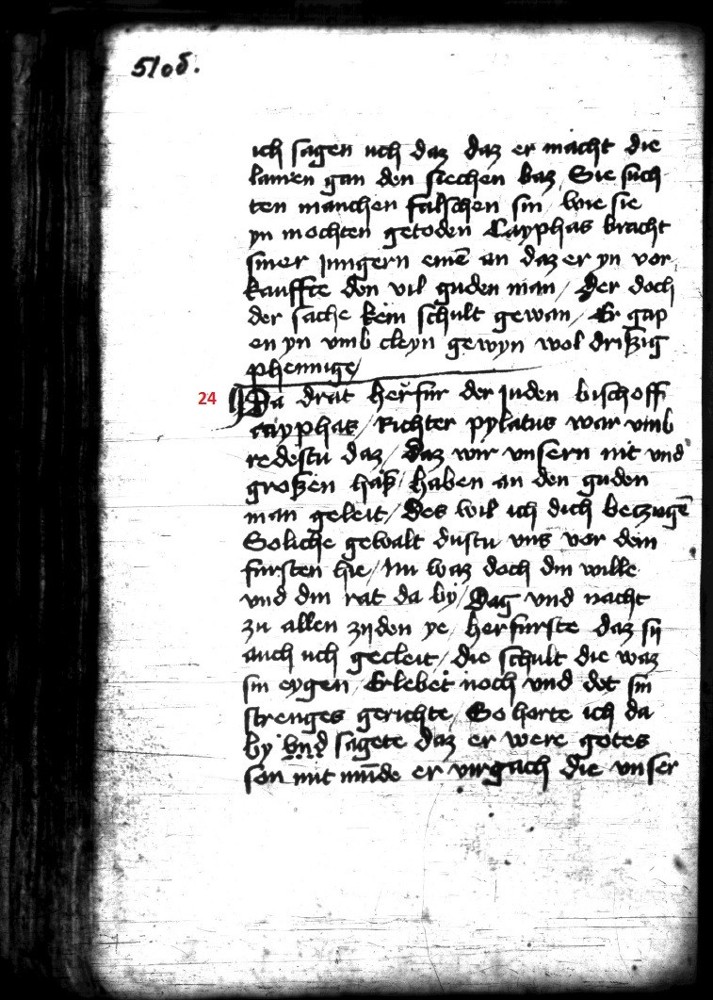 510b.
ich sagen uch daz daz er macht die
lamen gan den siechen baz Sie such
ten manchen falschen sin / wie sie
yn mochten getoden Cayphas bracht
siner jungern einē an daz er yn vor
kauffte den vil guden man / Der doch
der sache kein schult gewan / Er gap
en yn vmb cleyn gewyn wol drißig
phennige /
24 Da drat herfur der juden bischoff
cayphas / Richter pylatus war vmb
redestu daz / daz wir vnsern nit vnd
großen haß / haben an den guden
man geleit / Des wil ich dich betzugē
Soliche gewalt dustu vns vor dem
fursten hie / Nu waz doch din wille
vnd din rat da by / Dag vnd nacht
zu allen zijden ye / herfurste daz sij
auch uch gecleit / die schult die waz
sin eygen / Er lebet noch vnd det sin
strenges gerichte / So horte ich da
by vnd sagete daz er were gotes
son mit mūde er virgach die vnser